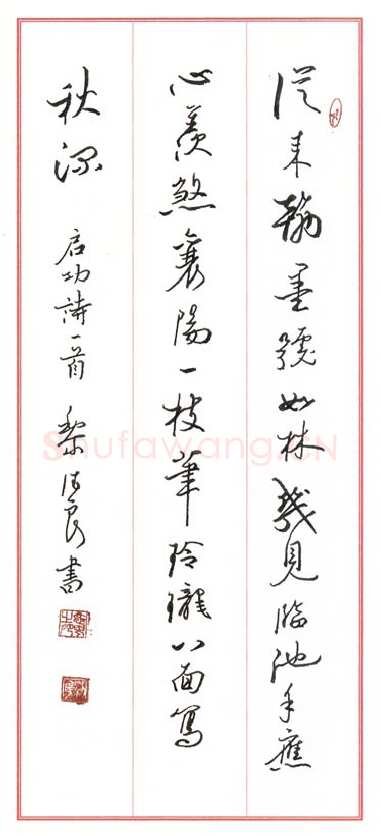 從來翰墨號如林幾見臨池手應
心羨煞襄陽一枝筆玲瓏八面寫
秋深 启功詩一首 黎良書
Shufawang.CN